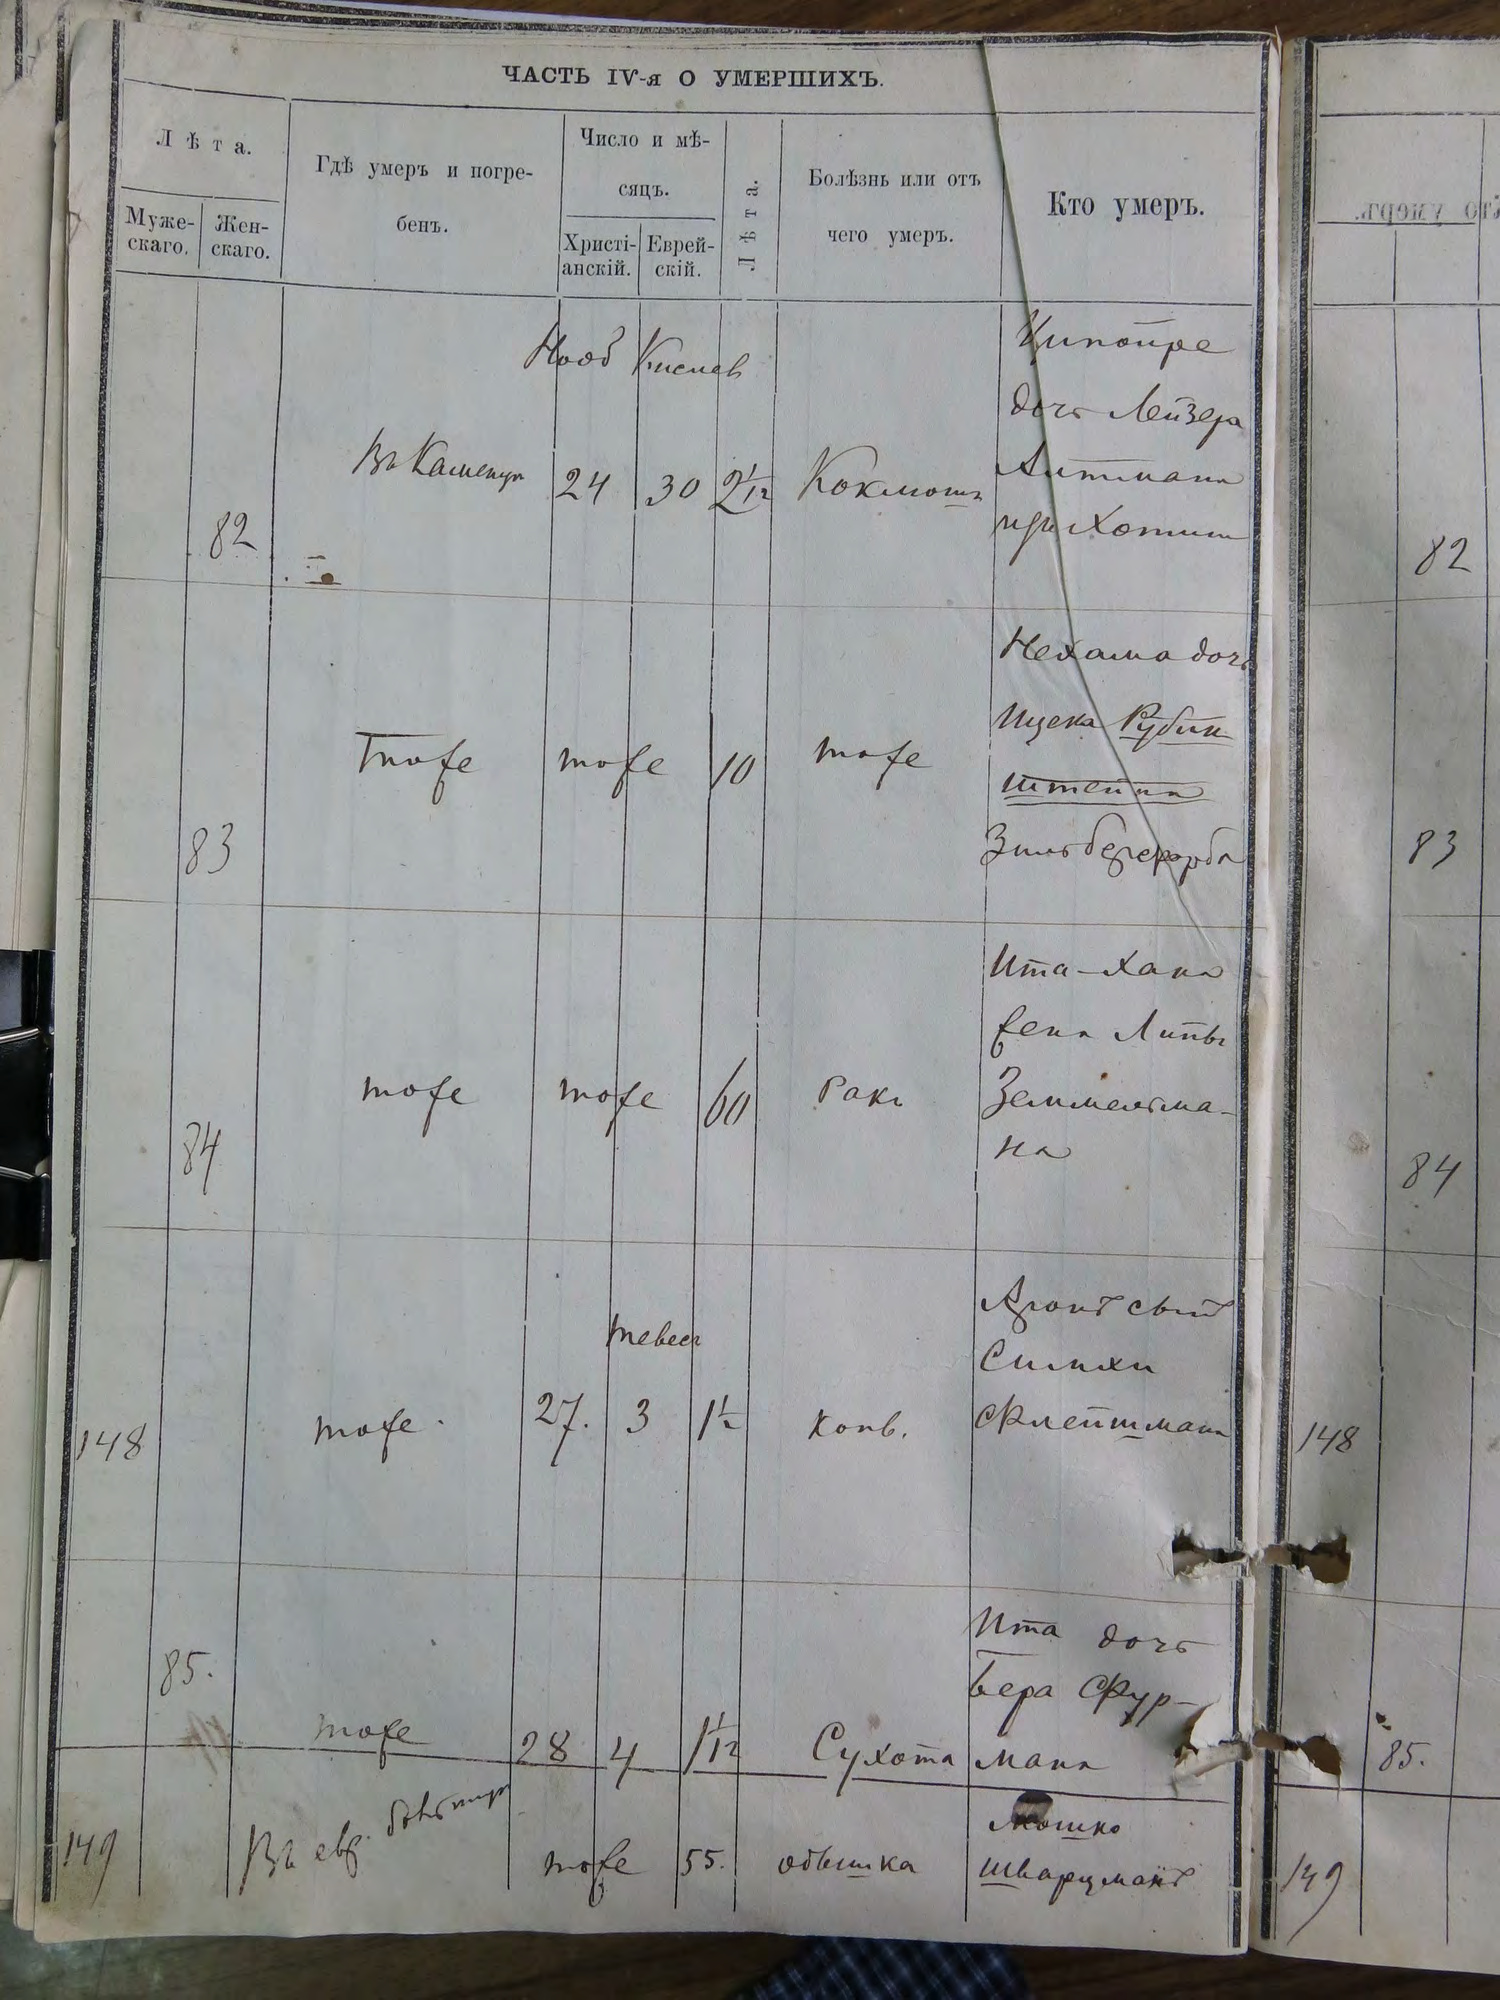 ЧАСТЬ IV-я О УМЕРШИХЪ.
Лѣта.
Муже-
скаго.
Жен-
скаго.
Гдѣ умеръ и погре-
бенъ.
Число и мѣ-
сяцъ.
Христі-
анскій.
Еврей-
скій.
Лѣта.
Болѣзнь или отъ
чего умеръ.
Кто умеръ.
82
Въ Каменцѣ
Нояб Кислев
24 30 2 1/12
Коклюшъ
Ципойре
дочь Лейзера
Алтмана
Хотин
82
83
тоже
тоже
10
тоже
Нехама дочь
Ицека Рубин
штейна
Зильбегфорба
83
84
тоже
тоже
60
Ракъ
Ита-Хана
жена Липы
Земмельма-
на
84
148
тоже
тевес
27. 3 1½
конв.
Аронъ сынъ
Симхи
Флейшмана
148
85.
тоже
28 4 1 1/12
Сухота
Ита дочь
Бера Фур-
мана
85.
149
Въ евр. больницѣ
тоже
55.
одышка
Мошко
Шварцманъ
149